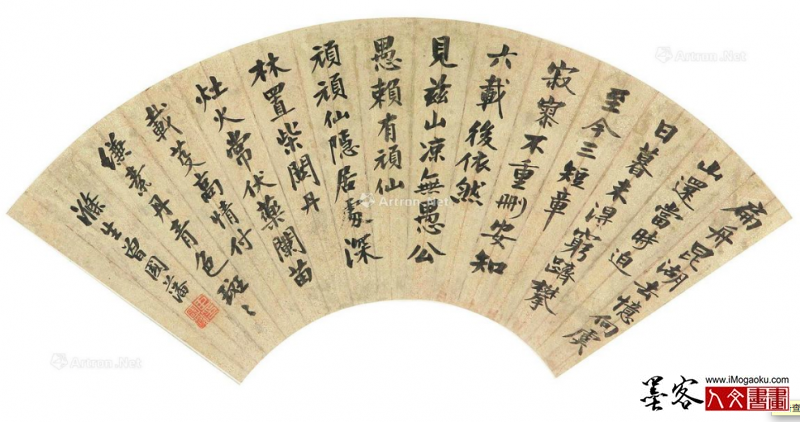 扁舟昆湖去憶向虞
山還當時迫
日暮未得窮躋攀
至今三短章
寂寞不重刪安知
六載後依然
見茲山凉無愚公
愚賴有頑仙
頑頑仙隱居處深
林置柴關丹
灶火常伏藥闌苗
載芟高情付
縑素丹青色斑〻
滌生曾國藩
Artron.Net
Artron.Net
Artron.Net
墨客
www.iMogaoku.com
人文書畫
查